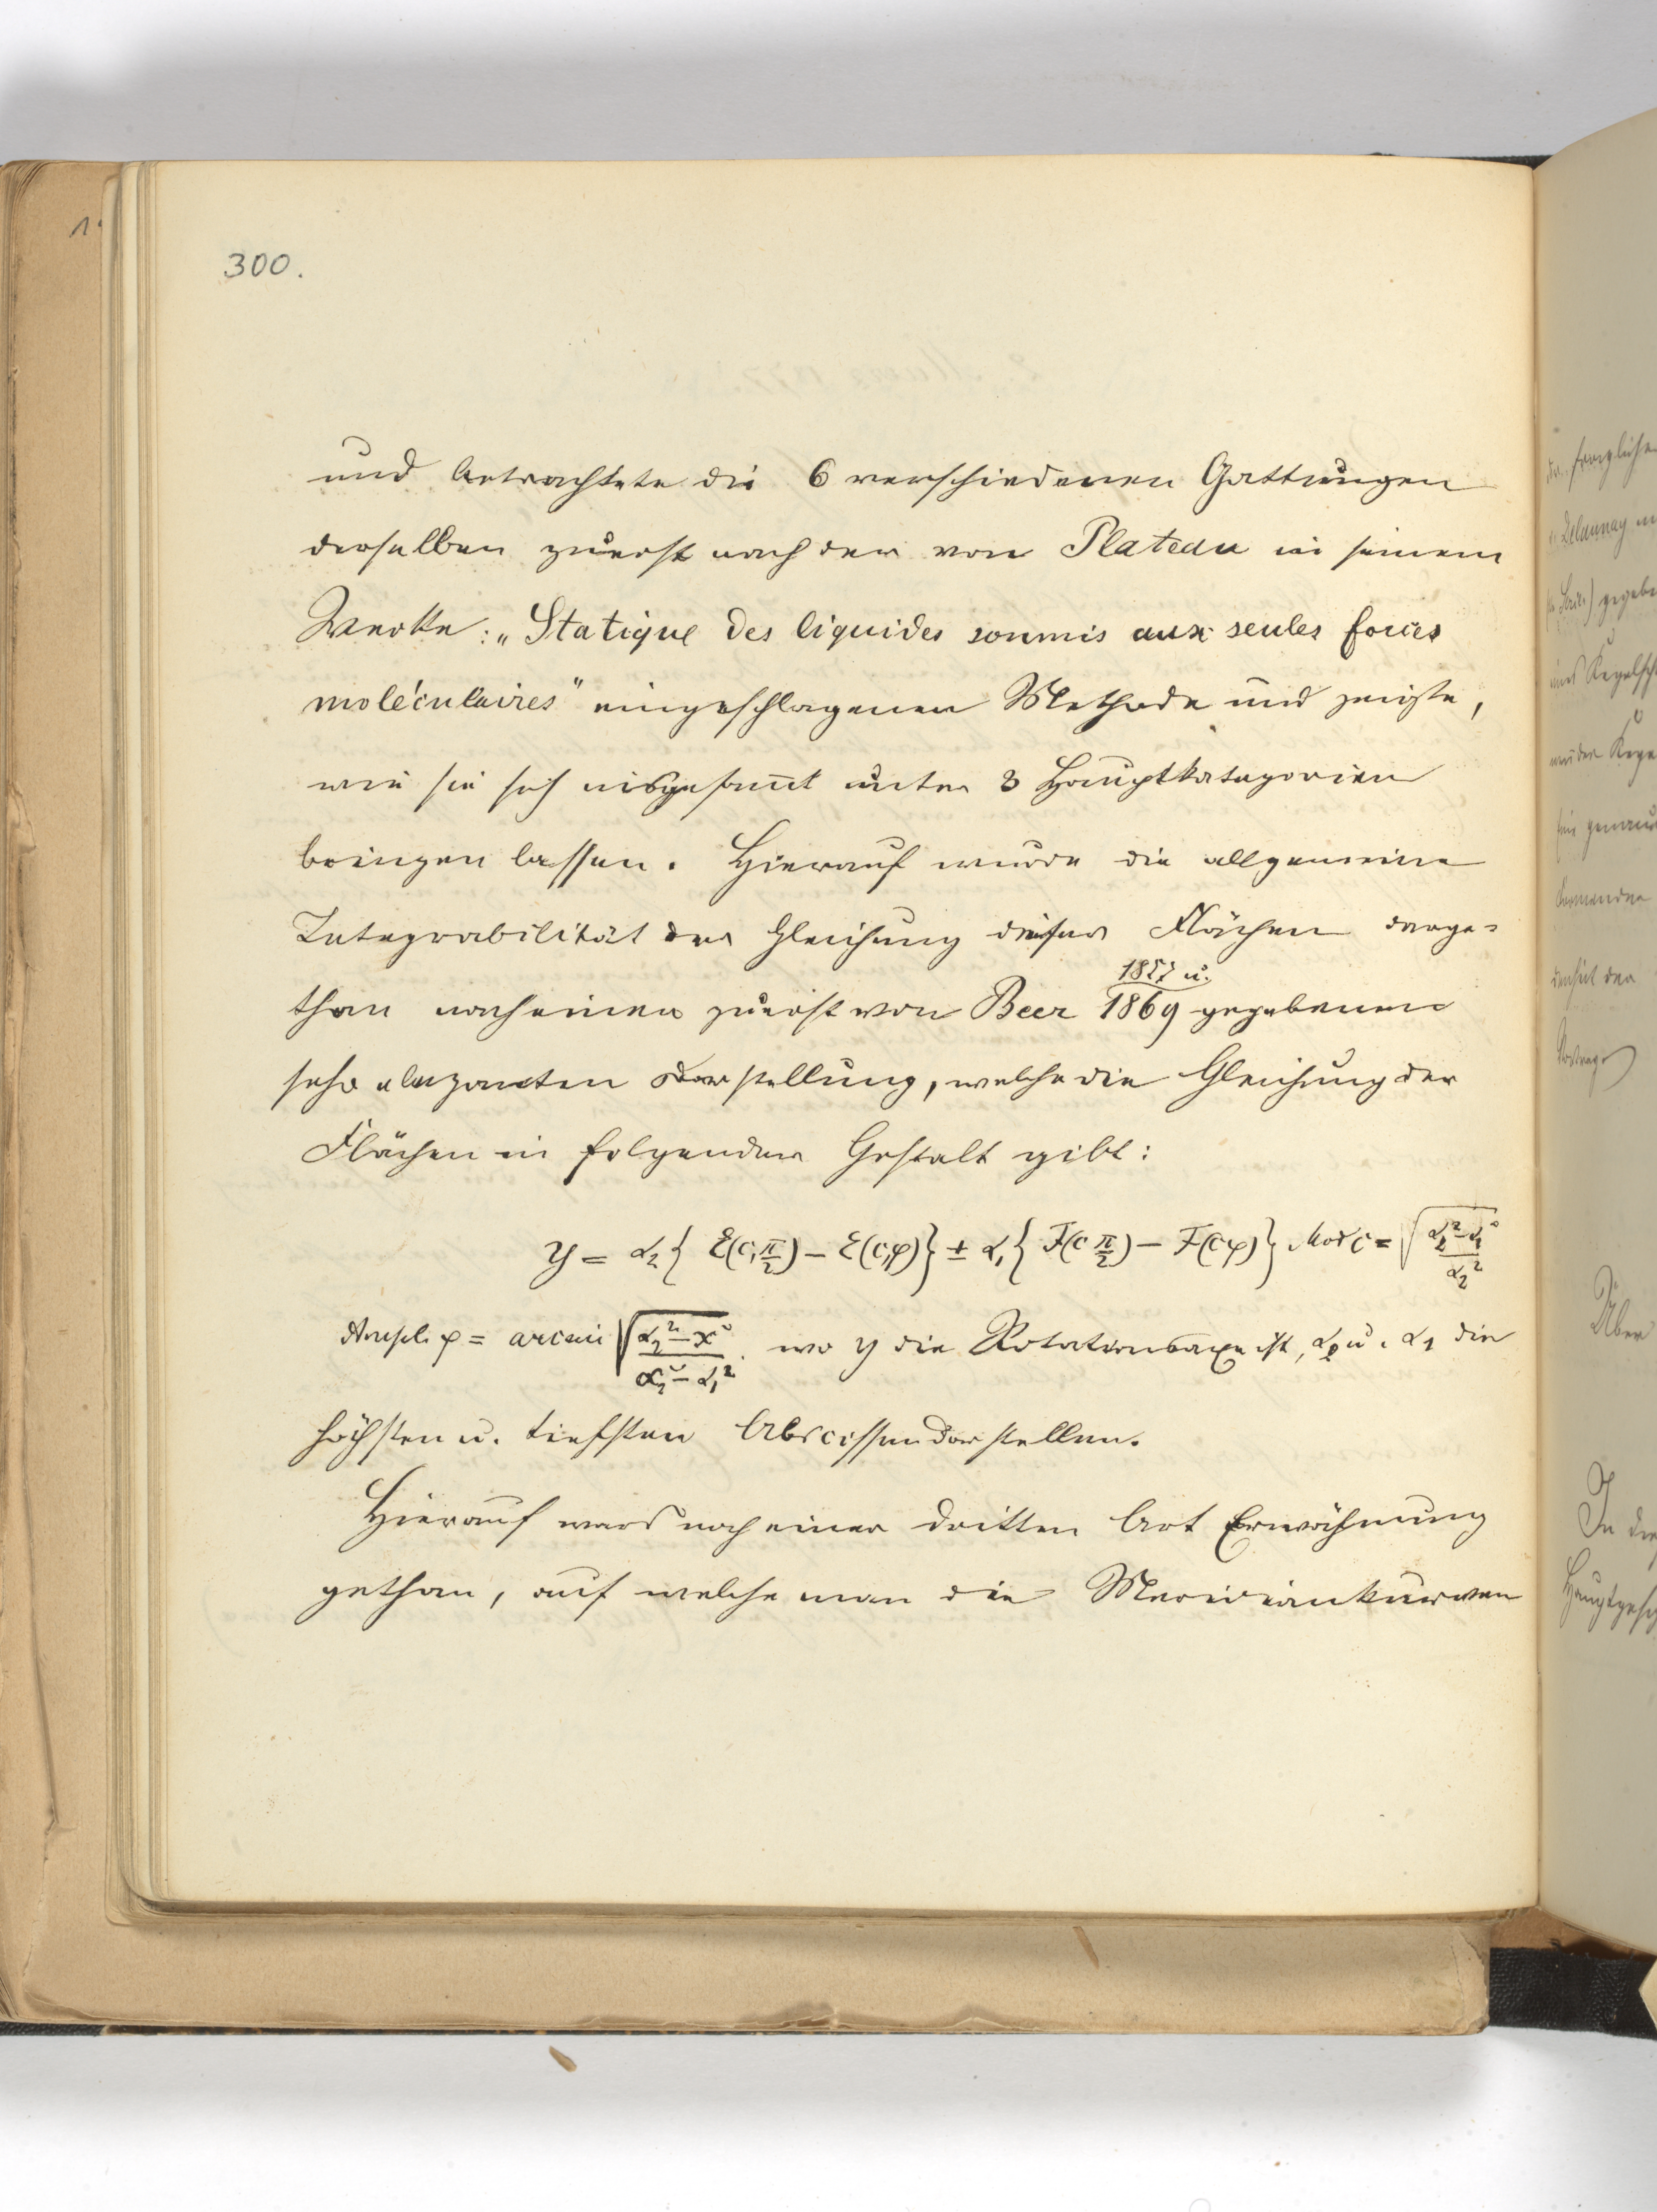 300.
und betrachtete die 6 verschiedenen Gattungen
derselben zuerst nach der von Plateau in seinem
Werke: „Statique des liquides soumis aux seules forces
moléculaires" eingeschlagenen Methode und zeigte,
wie sie sich insgesam̅t unter 3 Hauptkategorien
bringen lassen. Hierauf wurde die allgemeine
Integrabilität der Gleichung dieser Flächen darge-
1857 u.
than nach einer zuerst von Beer 1869 gegebenen
sehr eleganten Darstellung, welche die Gleichung der
Flächen in folgender Gestalt gibt:
y = α₂{ E(c,π/2) − E(c,φ)} ± α₁{ F(c π/2) − F(c φ)} Mod c = √(α₂²−α₁²/α₂²)
Ampl. φ = arcsin √(α₂²−x²/α₂²−α₁²). wo y die Rotationsaxe ist, α₂ u. α₁ die
höchsten u. tiefsten Abscissen darstellen.
Hierauf ward noch einer dritten Art Erwähnung
gethan, auf welche man die Meridiankurven
fragliche
Delaunay
gegebe
eines Kegelsch
Kege
genau
der
Über
In die
Hauptgesch